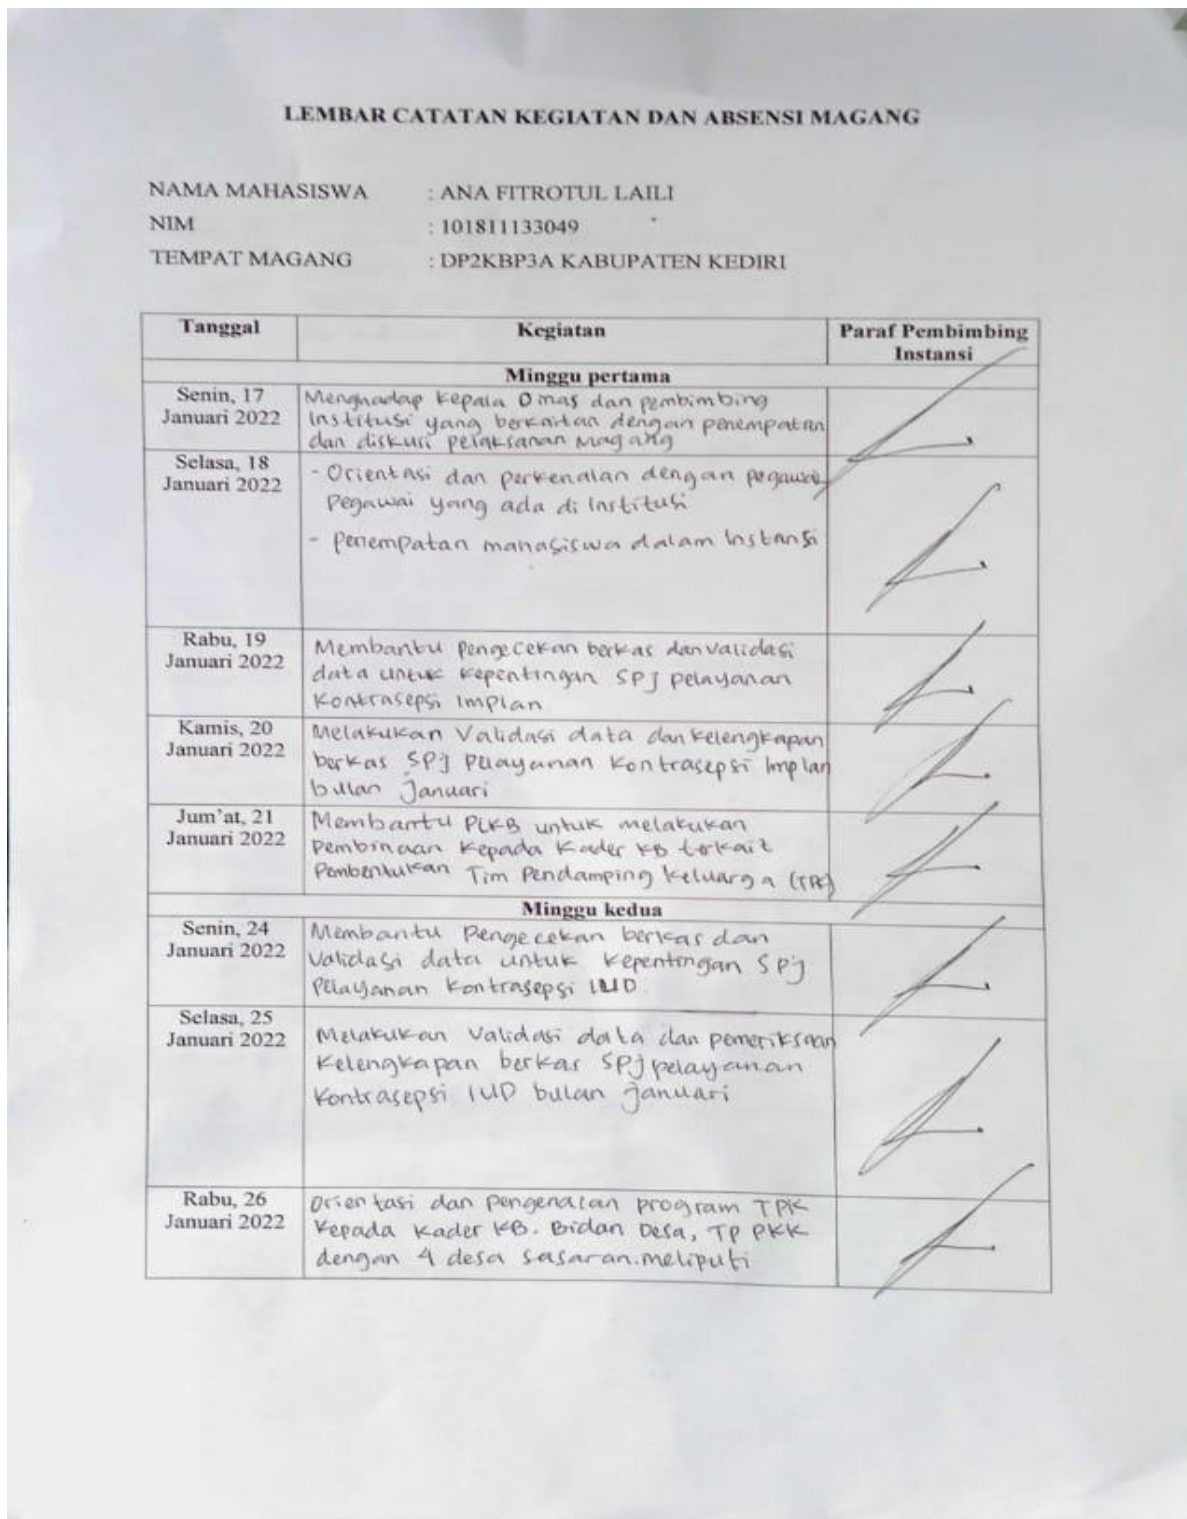 LEMBAR CATATAN KEGIATAN DAN ABSENSI MAGANG
NAMA MAHASISWA : ANA FITROTUL LAILI
NIM : 101811133049
TEMPAT MAGANG : DP2KBP3A KABUPATEN KEDIRI
Tanggal Kegiatan Paraf Pembimbing
Instansi
Minggu pertama
Senin, 17
Januari 2022
Menghadap Kepala Dinas dan pembimbing
Institusi yang berkaitan dengan penempatan
dan diskusi pelaksanan Magang
Selasa, 18
Januari 2022
- Orientasi dan perkenalan dengan pegawai
Pegawai yang ada di Institusi
- Penempatan mahasiswa dalam Instansi
Rabu, 19
Januari 2022
Membantu Pengecekan berkas dan validasi
data untuk Kepentingan SPJ pelayanan
Kontrasepsi Implan
Kamis, 20
Januari 2022
Melakukan Validasi data dan kelengkapan
berkas SPJ Pelayanan Kontrasepsi Implan
bulan Januari
Jum'at, 21
Januari 2022
Membantu PLKB untuk melakukan
Pembinaan Kepada Kader KB terkait
Pembentukan Tim Pendamping Keluarga (TPK)
Minggu kedua
Senin, 24
Januari 2022
Membantu Pengecekan berkas dan
Validasi data untuk Kepentingan SPJ
Pelayanan Kontrasepsi IUD.
Selasa, 25
Januari 2022
Melakukan Validasi data dan pemeriksaan
Kelengkapan berkas SPJ pelayanan
Kontrasepsi IUD bulan Januari
Rabu, 26
Januari 2022
Orientasi dan Pengenalan program TPK
Kepada Kader KB. Bidan Desa, TP PKK
dengan 4 desa sasaran.meliputi